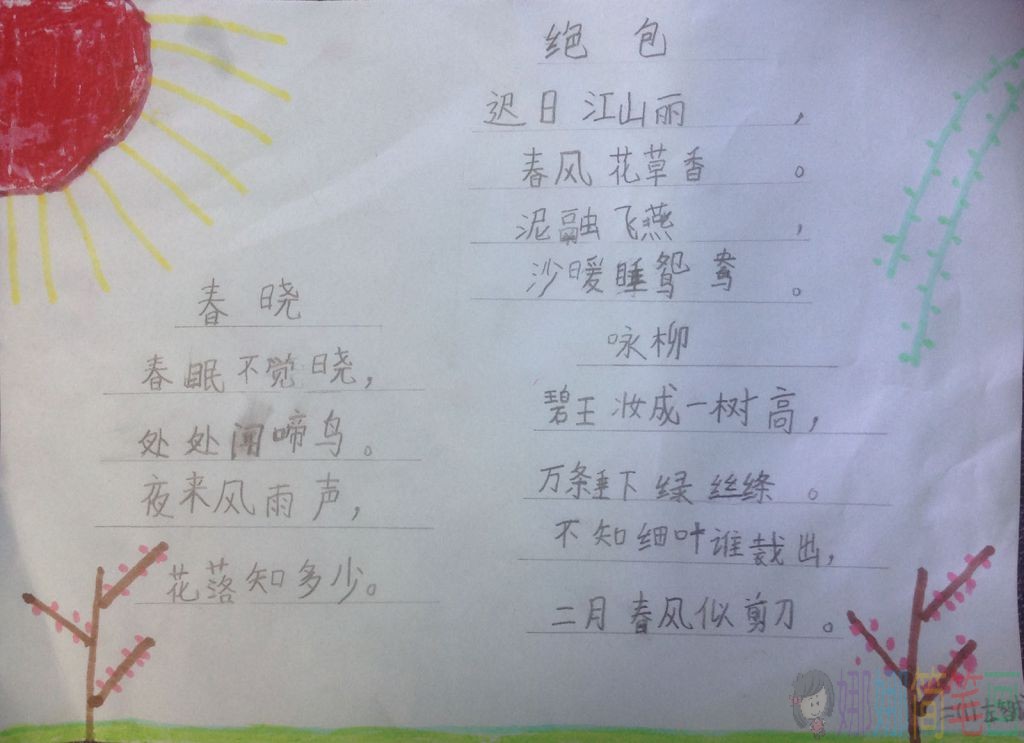 绝包
迟日江山丽,
春风花草香。
泥融飞燕,
沙暖睡鸳鸯。
咏柳
碧王妆成一树高,
万条垂下绿丝绦。
不知细叶谁裁出,
二月春风似剪刀。
春晓
春眠不觉晓,
处处闻啼鸟。
夜来风雨声,
花落知多少。